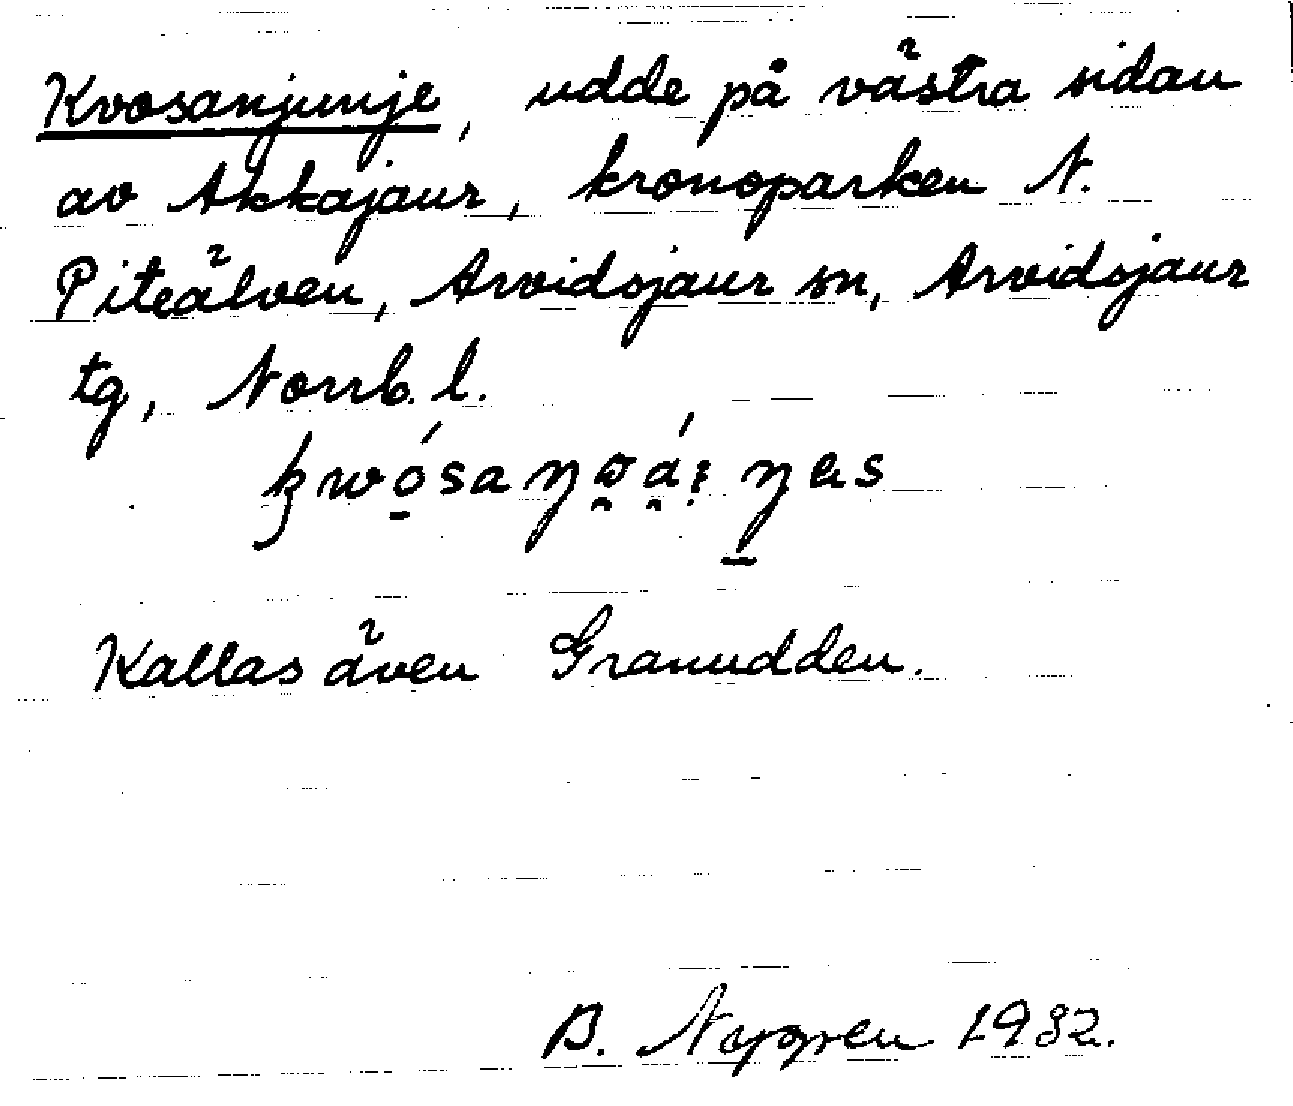 Kvosanjunje, udde på västra sidan
av Akkajaur, kronoparken N.
Piteälven, Arvidsjaur sn, Arvidsjaur
tg, Norrb. l.
Kallas även Granudden.
B. Nygren 1932.